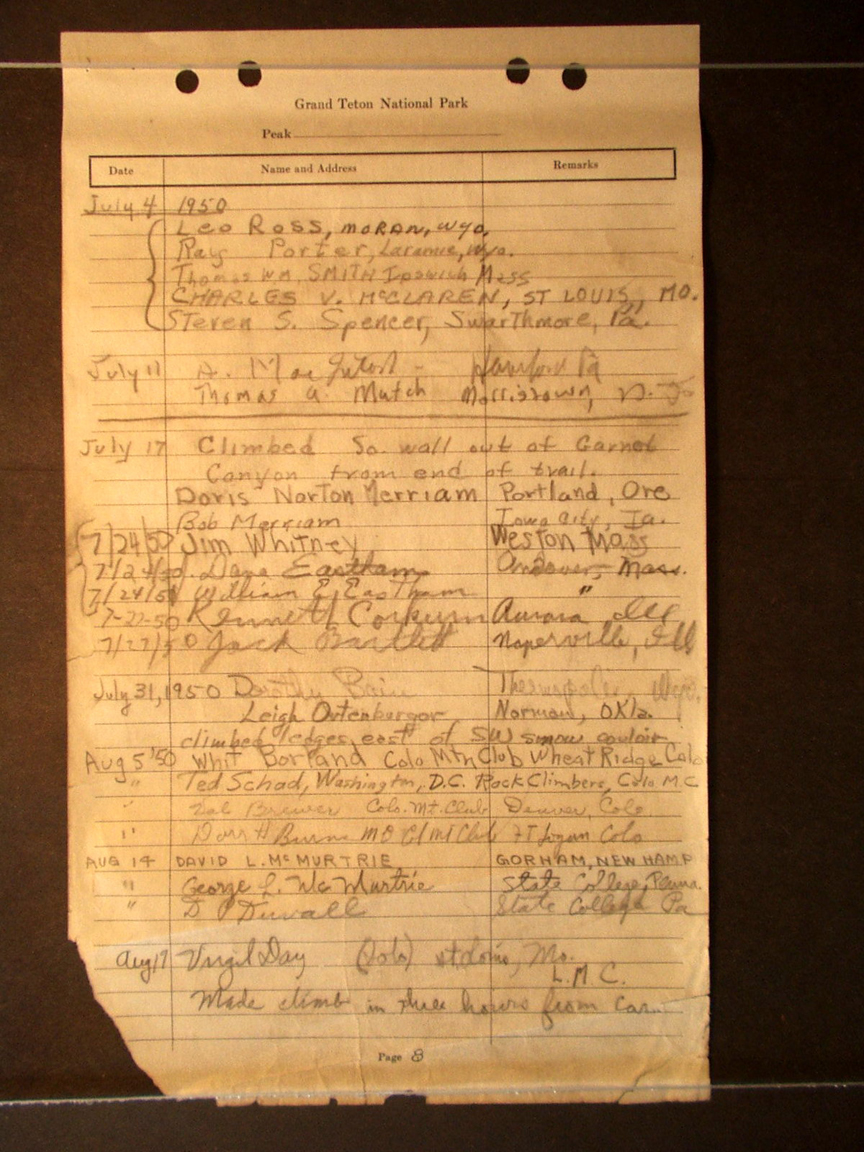 Grand Teton National Park
Peak
Date Name and Address Remarks
July 4 1950
Leo Ross, MORAN, WYO,
Ray Porter, Laramie, Wyo.
Thomas WM. SMITH Ipswich Mass
CHARLES V. McCLAREN, ST LOUIS, MO.
Steven S. Spencer, Swarthmore, Pa.
July 11 A. Pa
Thomas A. Mutch Morristown, N.J.
July 17 Climbed So. wall out of Garnet
Canyon from end of trail.
Doris Norton Merriam Portland, Ore
Bob Merriam Iowa City, Ia.
7/24/50 Jim Whitney Weston Mass
7/24/50 J. Dana Eastham Andover, Mass.
7/24/50 William E Eastham "
7-27-50 Kenneth Corkum Aurora Ill
7/27/50 Jack Bartlett Naperville, Ill
July 31, 1950 Dorothy Bain Thermopolis, Wyo.
Leigh Ortenburger Norman, Okla.
climbed ledges east of SW snow couloir
Aug 5 '50 Whit Borland Colo Mtn Club Wheat Ridge Colo
" Ted Schad, Washington, D.C. Rock Climbers, Colo M.C
" Brewer Colo. Mt. Club Denver, Colo
" Burns Club Ft Logan Colo
AUG 14 DAVID L. McMURTRIE GORHAM, NEW HAMP
" George L. McMurtrie State College, Penna.
" D P Duvall State College Pa
Aug 17 Virgil Day (Solo) St. Louis, Mo.
L.M.C.
Made climb in three hours from car.
Page 8